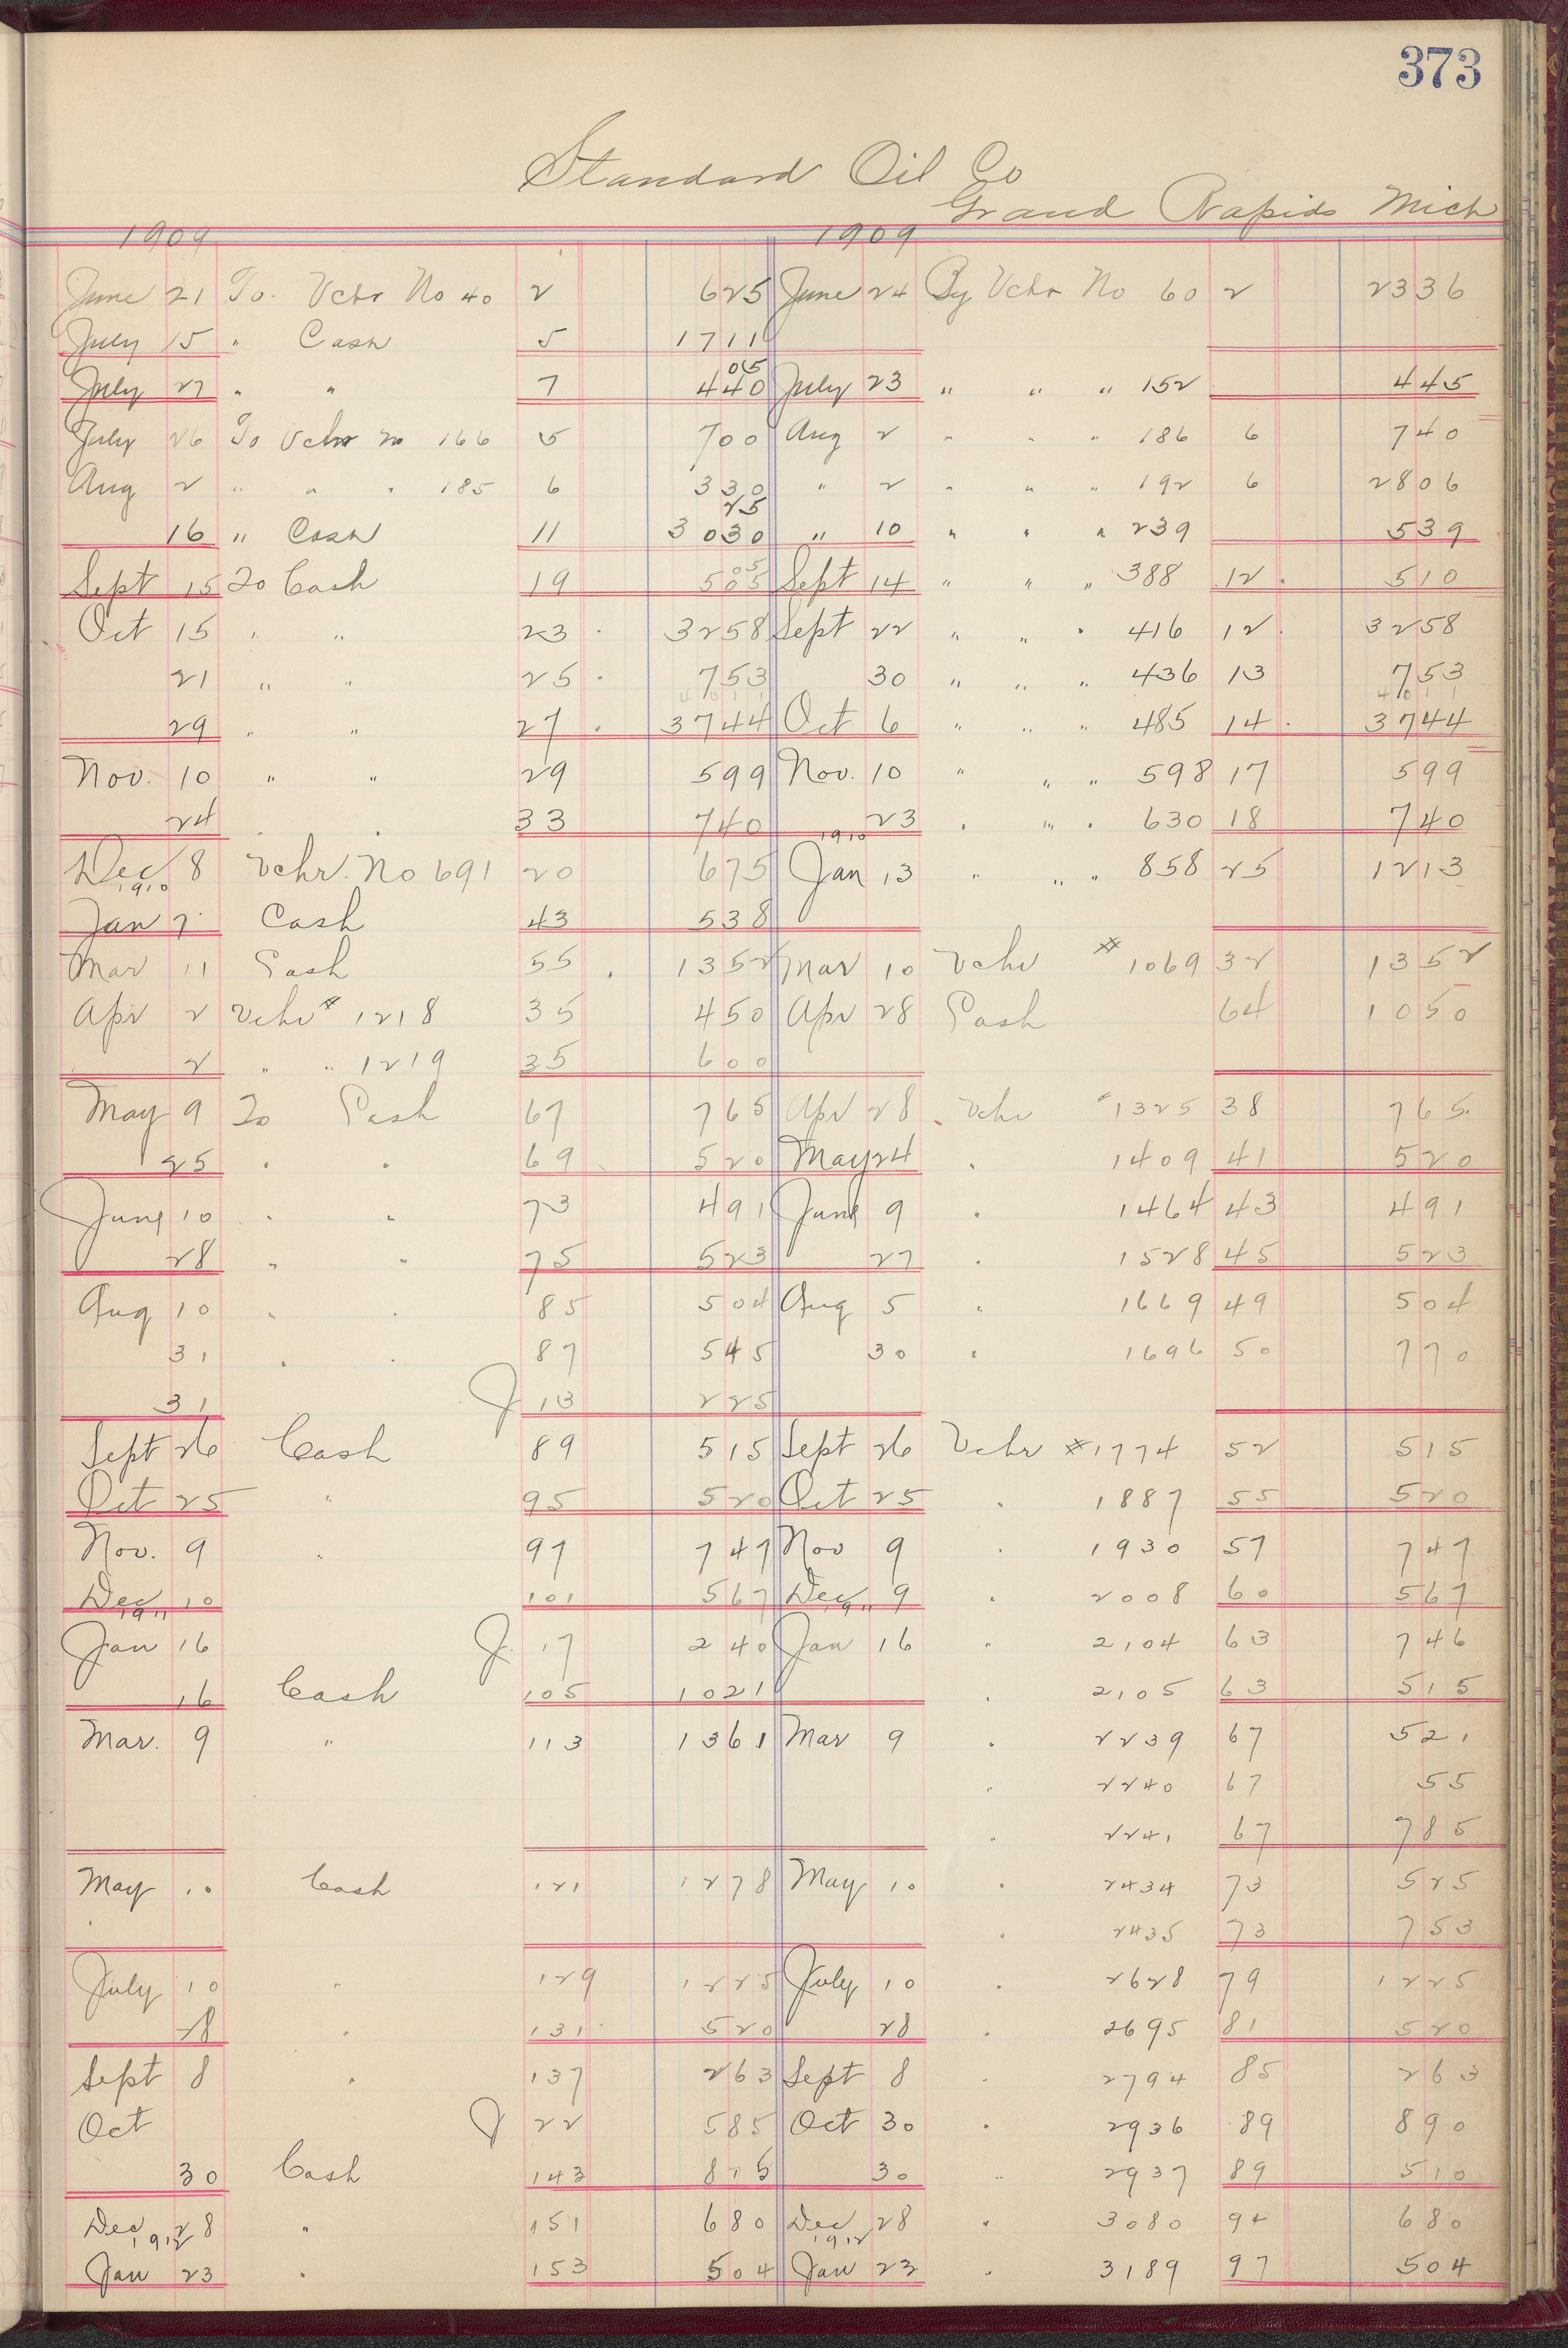 373
Standard Oil Co
Grand Rapids Mich
1909 1909
June 21 To. Vchr No 40 2 625 June 24 By Vchr No 60 2 2336
July 15 " Cash 5 1711
05
July 27 " " 7 440 July 23 " " " 152 445
July 26 To Vchr No 166 5 700 Aug 2 " " " 186 6 740
Aug 2 " " " 185 6 330 " 2 " " " 192 6 2806
25
16 " Cash 11 3030 " 10 " " " 239 539
05
Sept 15 To Cash 19 505 Sept 14 " " " 388 12 510
Oct 15 " " 23 3258 Sept 22 " " " 416 12 3258
21 " " 25 753 30 " " " 436 13 753
4011 4011
29 " " 27 3744 Oct 6 " " " 485 14 3744
Nov. 10 " " 29 599 Nov. 10 " " " 598 17 599
24 " " 33 740 23 " " " 630 18 740
1910
Dec 8 Vchr. No 691 20 675 Jan 13 " " " 858 25 1213
1910
Jan 7 Cash 43 538
Mar 11 Cash 55 1352 Mar 10 Vchr # 1069 32 1352
Apr 2 Vchr # 1218 35 450 Apr 28 Cash 64 1050
2 " " 1219 35 600
May 9 To Cash 67 765 Apr 28 Vchr # 1325 38 765
25 " " 69 520 May 24 " 1409 41 520
June 10 " " 73 491 June 9 " 1464 43 491
28 " " 75 523 27 " 1528 45 523
Aug 10 " " 85 504 Aug 5 " 1669 49 504
31 " " 87 545 30 " 1696 50 770
31 J 13 225
Sept 26 Cash 89 515 Sept 26 Vchr #1774 52 515
Oct 25 " 95 520 Oct 25 " 1887 55 520
Nov. 9 " 97 747 Nov 9 " 1930 57 747
Dec 10 101 567 Dec 9 " 2008 60 567
1911 1911
Jan 16 J. 17 240 Jan 16 " 2104 63 746
16 Cash 105 1021 " 2105 63 515
Mar. 9 " 113 1361 Mar 9 " 2239 67 521
" 2240 67 55
" 2241 67 785
May 10 Cash 121 1278 May 10 " 2434 73 525
" 2435 73 753
July 10 " 129 1225 July 10 " 2628 79 1225
28 " 131 520 28 " 2695 81 520
Sept 8 " 137 263 Sept 8 " 2794 85 263
Oct J 22 585 Oct 30 " 2936 89 890
30 Cash 143 815 30 " 2937 89 510
Dec 28 " 151 680 Dec 28 " 3080 94 680
1912 1912
Jan 23 " 153 504 Jan 23 " 3189 97 504